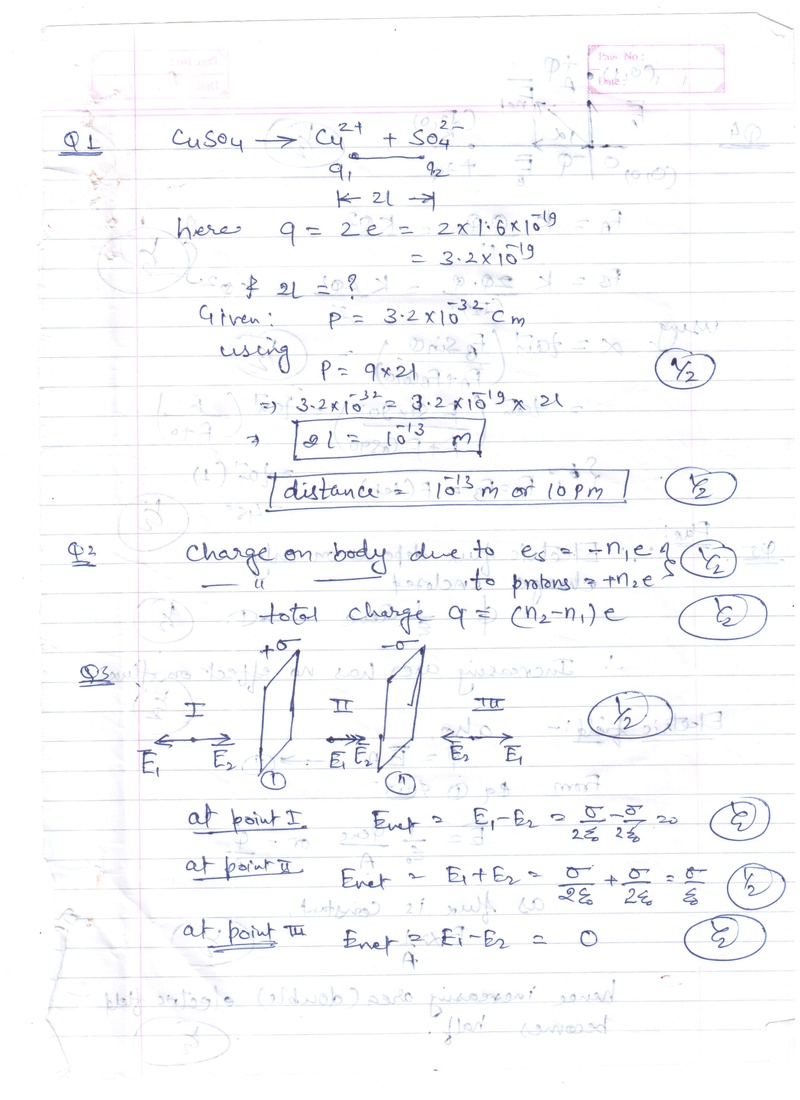 Page No:
Date:
Q1 CuSO4 → Cu²⁺ + SO4²⁻
q1 q2
|← 2l →|
here q = 2e = 2×1.6×10⁻¹⁹
= 3.2×10⁻¹⁹
& 2l = ?
Given: P = 3.2×10⁻³² Cm
using
P = q×2l
1/2
⇒ 3.2×10⁻³² = 3.2×10⁻¹⁹ × 2l
⇒ 2l = 10⁻¹³ m
distance = 10⁻¹³ m or 10 Pm
1/2
Q2 Charge on body due to es = -n1e
1/2
— " — to protons = +n2e
total charge q = (n2-n1)e
1/2
Q3 +σ -σ
I II III
1/2
E1 E2 E1 E2 E2 E1
① ②
at point I Enet = E1-E2 = σ/2ε0 - σ/2ε0 = 0
1/2
at point II Enet = E1+E2 = σ/2ε0 + σ/2ε0 = σ/ε0
1/2
at point III Enet = E1-E2 = 0
1/2